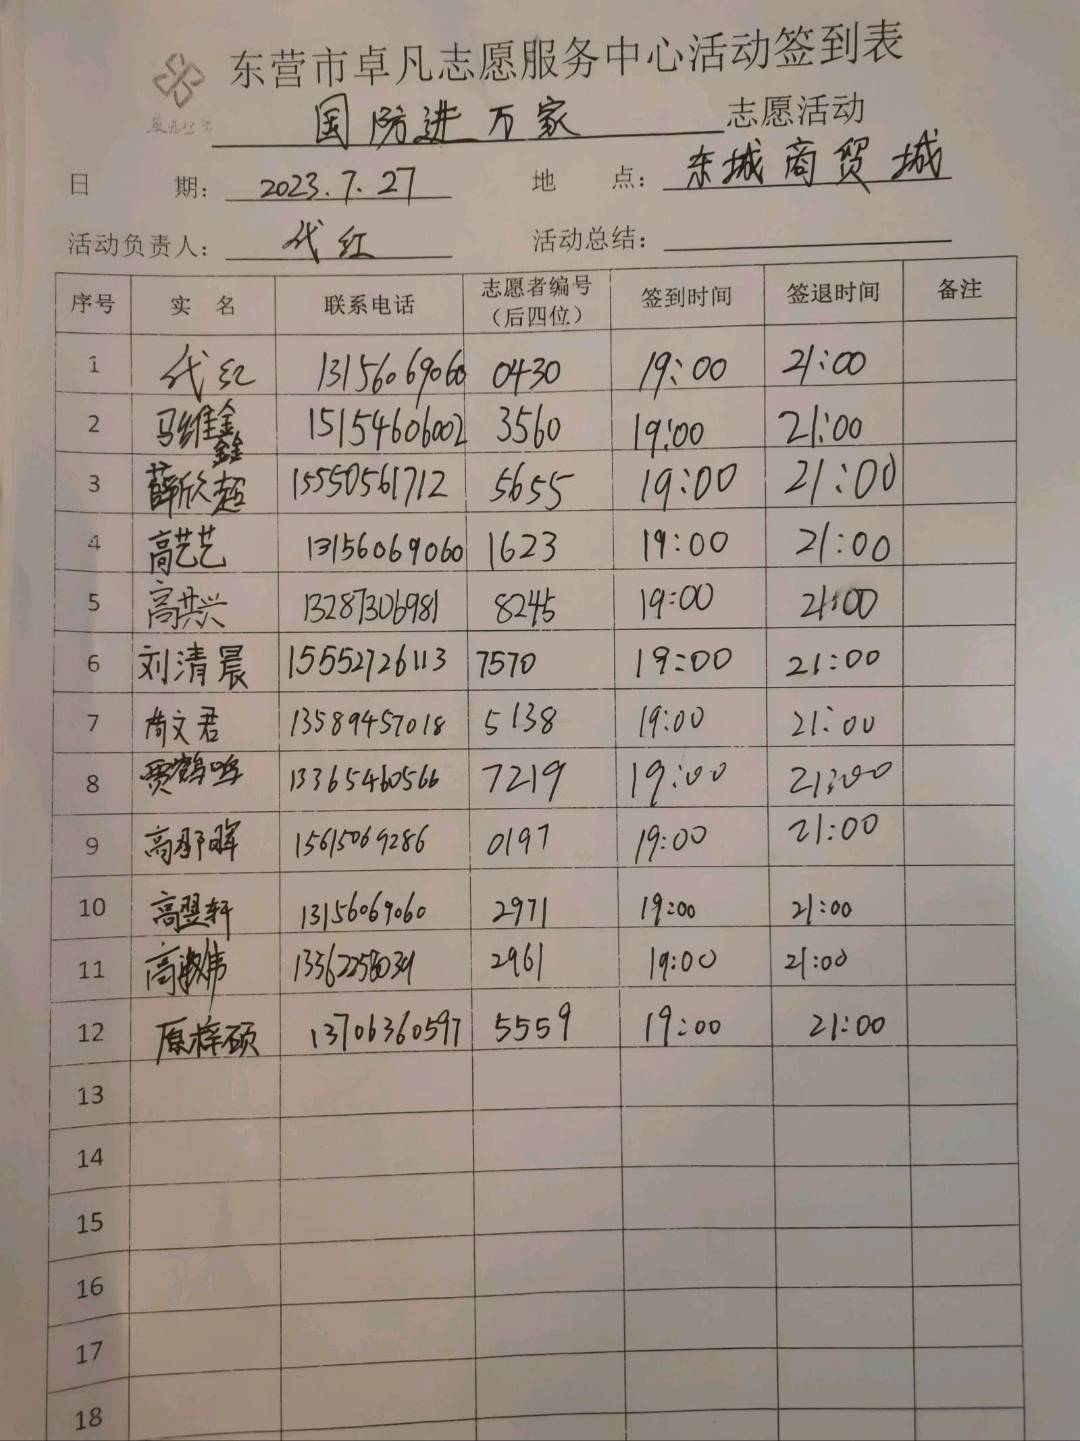 东营市卓凡志愿服务中心活动签到表
国防进万家 志愿活动
日 期: 2023.7.27 地 点: 东城商贸城
活动负责人: 代红 活动总结:
序号 实 名 联系电话 志愿者编号（后四位） 签到时间 签退时间 备注
1 代红 13156069060 0430 19:00 21:00
2 马维鑫 15154606002 3560 19:00 21:00
3 薛欣超 15550561712 5655 19:00 21:00
4 高艺艺 13156069060 1623 19:00 21:00
5 高洪兴 13287306981 8245 19:00 21:00
6 刘清晨 15552726113 7570 19:00 21:00
7 尚文君 13589457018 5138 19:00 21:00
8 贾鹤鸣 13365460566 7219 19:00 21:00
9 15615069286 0197 19:00 21:00
10 高翌轩 13156069060 2971 19:00 21:00
11 2961 19:00 21:00
12 原梓硕 13706360597 5559 19:00 21:00
13
14
15
16
17
18